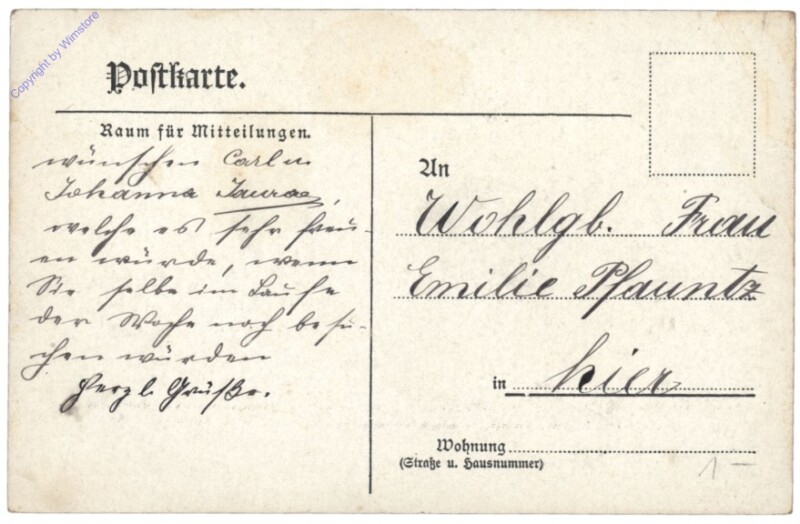 Copyright by Wimstore
Postkarte.
Raum für Mitteilungen.
wünschen Carl u.
Johanna
welche es sehr freu-
en würde, wenn
Sie selbe im Laufe
der Woche noch besu-
chen würden
Herzl. Grüße.
An
Wohlgb. Frau
Emilie Pfauntz
in hier
Wohnung
(Straße u. Hausnummer)
1 —